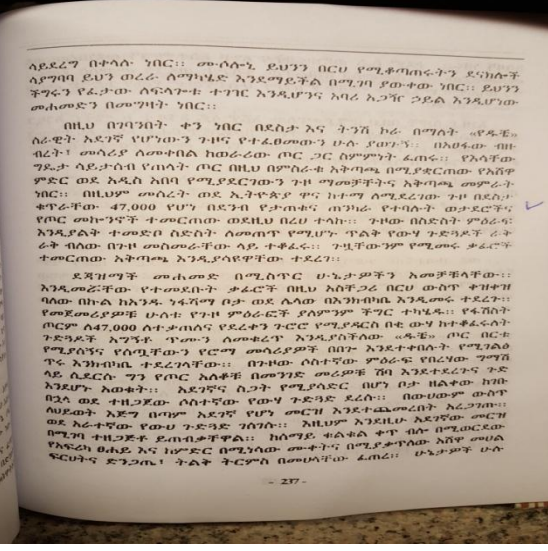 ሳይደረግ በቀላሉ ነበር። ሙሶሎኒ ይህንን በርሀ የሚቆጣጠሩትን ደናክሎች
ሳያግባባ ይህን ወረራ ለማካሄድ እንደማይችል በሚገባ ያውቀው ነበር። ይህንን
ችግሩን የፈታው ለፍላጎቱ ተገዢ እንዲሆንና አባሪ አጋዥ ኃይል እንዲሆነው
መሐመድን በመግዛት ነበር።
በዚህ በገባንበት ቀን ነበር በደስታ እና ትንሽ ኮራ በማለት «የዱቼ»
ሰራዊት አደገኛ የሆነውን ጉዞና የተፈፀመውን ሁሉ ያወጉኝ። በአፀፋው ብዙ
ብረት፣ መሳሪያ ለመቀበል ከወራሪው ጦር ጋር ስምምነት ፈጠሩ። የእሳቸው
ግዴታ ሳይታሰብ የጠላት ጦር በዚህ በምስራቁ አቅጣጫ በሚያቋርጠው የአሸዋ
ምድር ወደ አዲስ አበባ የሚያደርገውን ጉዞ ማመቻቸትና አቅጣጫ መምራት
ነበር። በዚህም መሰረት ወደ ኢትዮጵያ ዋና ከተማ ለሚደረገው ጉዞ በደስታ
ቁጥራቸው 47,000 የሆነ በደንብ የታጠቁና ጠንካራ የተባሉት ወታደሮችና
የጦር መኮንኖች ተመርጠው ወደዚህ በረሀ ተላኩ። ጉዞው በስድስት ምዕራፍ
እንዲያልቅ ተመድቦ ስድስት ለመጠጥ የሚሆኑ ጥልቅ የውሃ ጉድጓዶች ራቅ
ራቅ ብለው በጉዞ መስመራቸው ላይ ተቆፈሩ። ጉዟቸውንም የሚመሩ ቃፊሮች
ተመርጠው አቅጣጫ እንዲያሳዩዋቸው ተደረገ።
ደጃዝማች መሐመድ በሚስጥር ሁኔታዎችን አመቻቹላቸው።
እንዲመሯቸው የተመደቡት ቃፊሮች በዚህ አስቸጋሪ በርሀ ውስጥ ቀዝቀዝ
ባለው በኩል ከአንዱ ነፋሻማ ቦታ ወደ ሌላው በእንክብካቤ እንዲመሩ ተደረጉ።
የመጀመሪያዎቹ ሁለቱ የጉዞ ምዕራፎች ያለምንም ችግር ተካሄዱ። የፋሽስት
ጦርም ለ47,000 ለተቃጠለና የደረቀን ጉሮሮ የሚያዳርስ በቂ ውሃ ከተቆፈሩለት
ጉድጓዶች አግኝቶ ጥሙን ለመቁረጥ እንዲያስችለው «ዱቼ» ጦር በርቱ
የሚያሰኝና የሰጧቸውን የሮማ መሳሪያዎች በበጉ እንደተቀበሉት የሚገልፅ
ጥሩ እንክብካቤ ተደረገላቸው። በጉዞው ሶስተኛው ምዕራፍ የበረሃው ግማሽ
ላይ ሲደርሱ ግን የጦር አለቆቹ በመንገድ መሪዎቹ ሽባ እንደተደረጉና ጉድ
እንደሆኑ አወቁት። አደገኛና ስጋት የሚያሳድር በሆነ ቦታ ዘልቀው ከገቡ
በኋላ ወደ ተዘጋጀው ሶስተኛው የውሃ ጉድጓድ ደረሱ። በውሀውም ውስጥ
ለህይወት እጅግ በጣም አደገኛ የሆነ መርዝ እንደተጨመረበት አረጋገጡ።
ወደ አራተኛው የውሀ ጉድጓድ ገሰገሱ። እዚህም እንደዚሁ አደገኛው መርዝ
በሚገባ ተዘጋጅቶ ይጠብቃቸዋል። ከሰማይ ቁልቁል ቀጥ ብሎ በሚወርደው
የአፍሪካ ፀሐይ እና ከምድር በሚነሳው ሙቀትና በሚያቃጥለው አሸዋ መሀል
ፍርሀትና ድንጋጤ፣ ትልቅ ትርምስ በመሀላቸው ፈጠረ። ሁኔታዎች ሁሉ
- 237 -